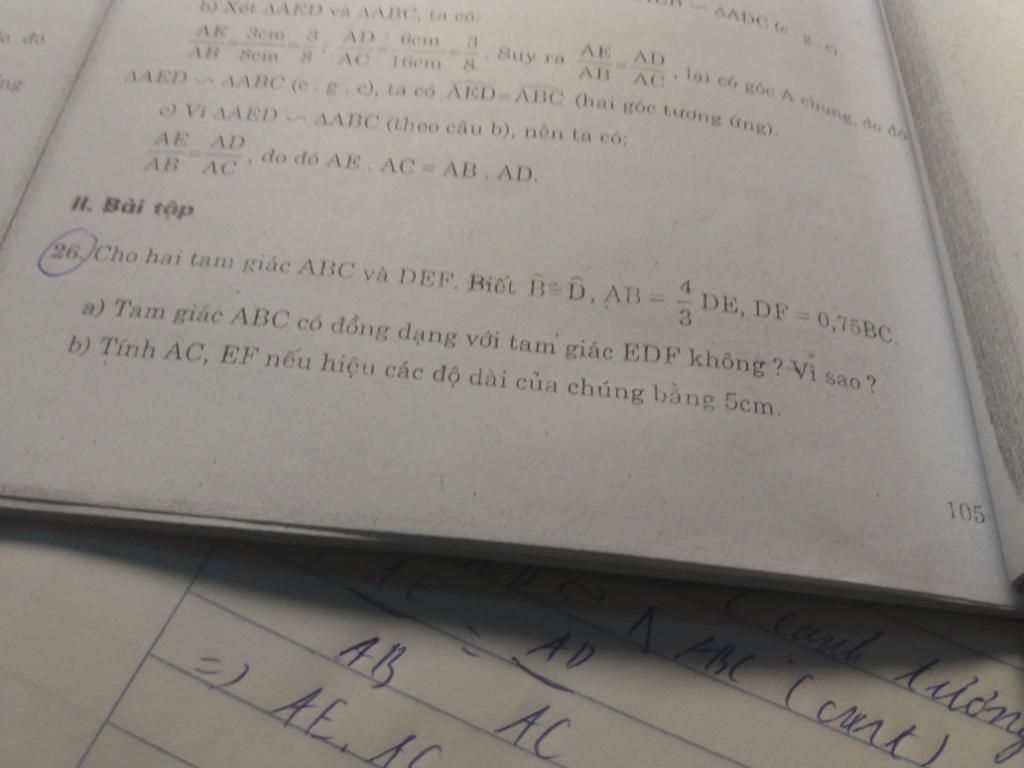 ΔADC (c . g . c).
b) Xét ΔAED và ΔABC, ta có:
AE/AB = 3cm/8cm = 3/8 ; AD/AC = 6cm/16cm = 3/8 . Suy ra AE/AB = AD/AC , lại có góc A chung, do đó
ΔAED ∽ ΔABC (c . g . c), ta có AED = ABC (hai góc tương ứng).
c) Vì ΔAED ∽ ΔABC (theo câu b), nên ta có:
AE/AB = AD/AC , do đó AE . AC = AB . AD.
II. Bài tập
26. Cho hai tam giác ABC và DEF. Biết B̂ = D̂, AB = 4/3 DE, DF = 0,75BC.
a) Tam giác ABC có đồng dạng với tam giác EDF không ? Vì sao ?
b) Tính AC, EF nếu hiệu các độ dài của chúng bằng 5cm.
105
ABC (cạnh tương
AE/AB = AD/AC
=) AE. AC